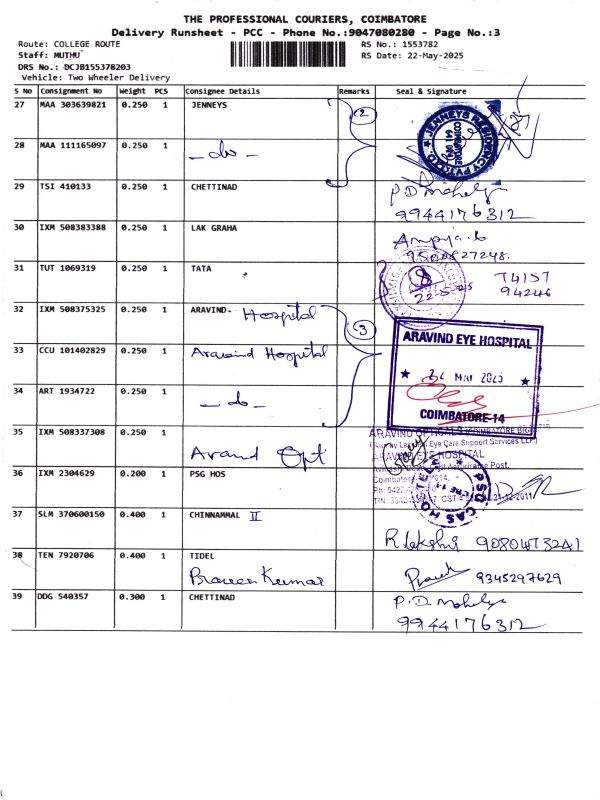 THE PROFESSIONAL COURIERS, COIMBATORE
Delivery Runsheet - PCC - Phone No.:9047080280 - Page No.:3
Route: COLLEGE ROUTE RS No.: 1553782
Staff: MUTHU RS Date: 22-May-2025
DRS No.: DCJB155378203
Vehicle: Two Wheeler Delivery
S No Consignment No Weight PCS Consignee Details Remarks Seal & Signature
27 MAA 303639821 0.250 1 JENNEYS 2
JENNEYS RESIDENCY PVT LTD.
COIMBATORE
28 MAA 111165097 0.250 1 - do -
29 TSI 410133 0.250 1 CHETTINAD
9944176312
30 IXM 508383388 0.250 1 LAK GRAHA
9500827248.
31 TUT 1069319 0.250 1 TATA
22-5-25
94246
32 IXM 508375325 0.250 1 ARAVIND- Hospital 3
ARAVIND EYE HOSPITAL
33 CCU 101402829 0.250 1 Aravind Hospital
34 ART 1934722 0.250 1 - do -
COIMBATORE-14
35 IXM 508337308 0.250 1
Aravind Opt
ARAVIND EYE HOSPITAL
36 IXM 2304629 0.200 1 PSG HOS
PSG CAS HOSTEL
37 SLM 370600150 0.400 1 CHINNAMMAL II
38 TEN 7920706 0.400 1 TIDEL
Praveen Kumar 9345297629
39 DDG 540357 0.300 1 CHETTINAD
9944176312